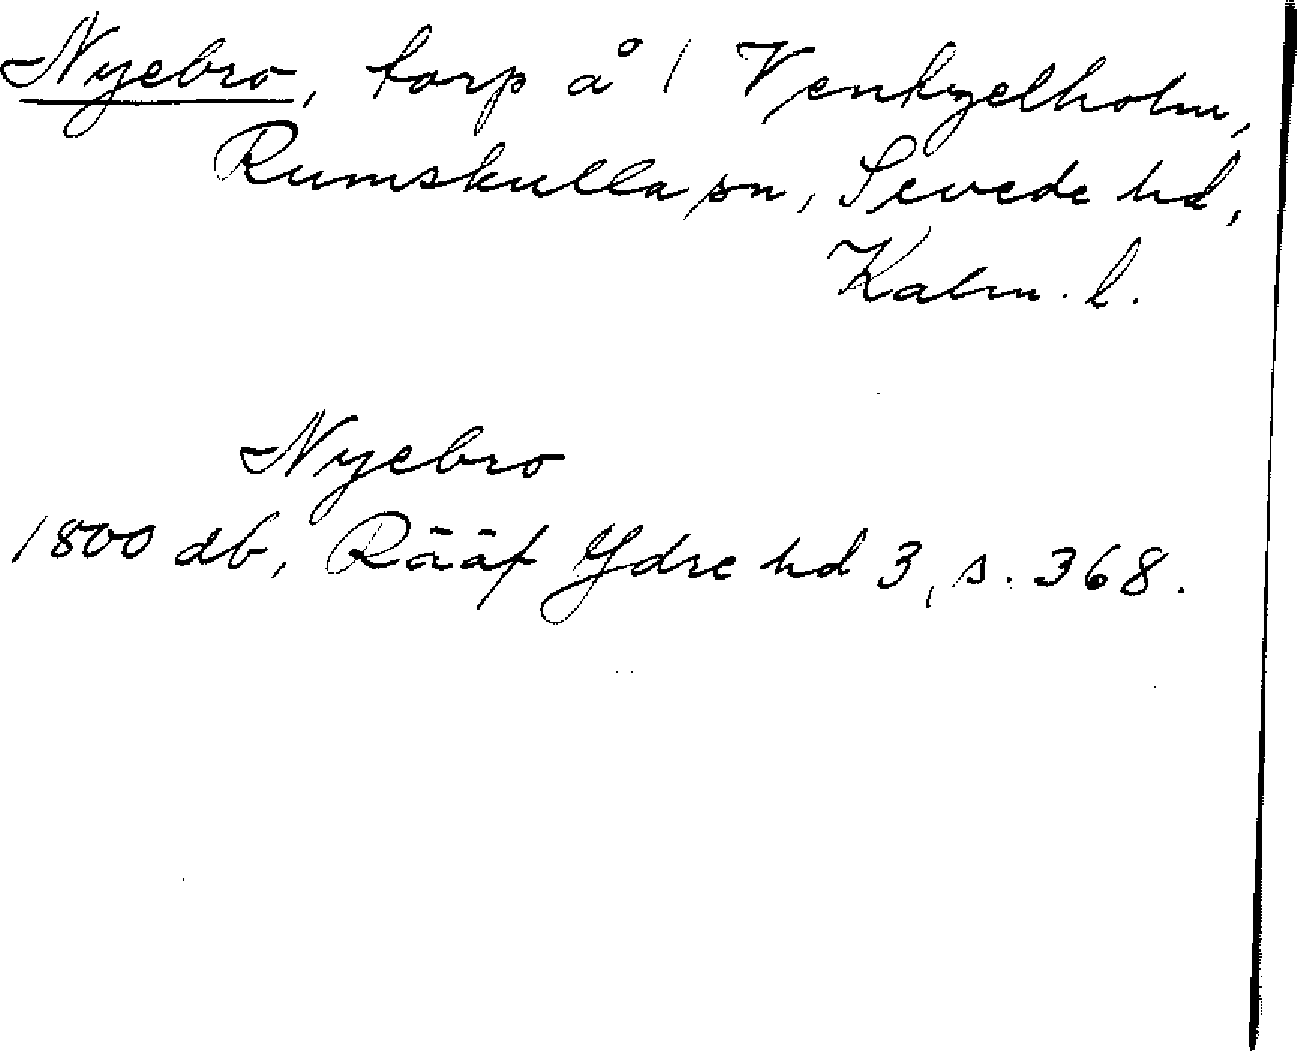 Nyebro, torp å 1 Ventzelholm,
Rumskulla sn, Sevede hd,
Kalm. l.
Nyebro
1800 db, Rääf Ydre hd 3, s. 368.